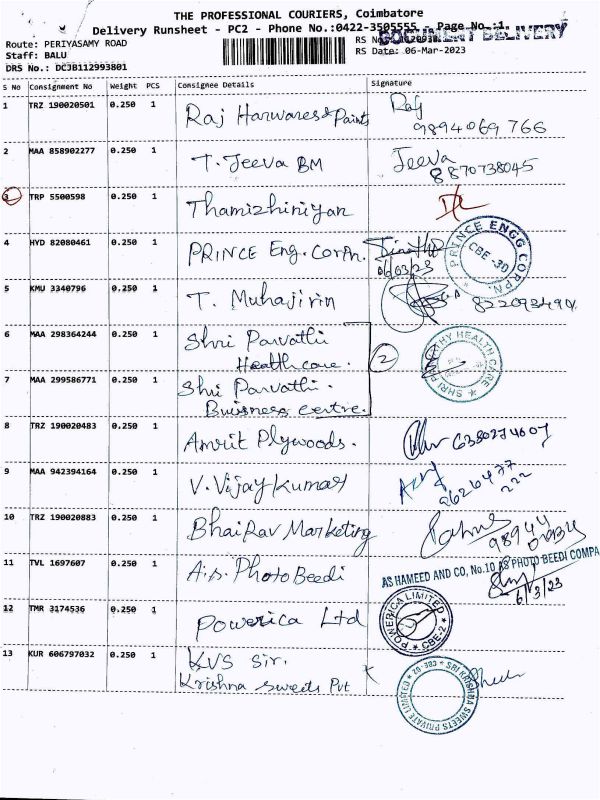 THE PROFESSIONAL COURIERS, Coimbatore
Delivery Runsheet - PC2 - Phone No.:0422-3505555 - Page No.:1
DOCUMENT DELIVERY
Route: PERIYASAMY ROAD
Staff: BALU
DRS No.: DCJB112993801
RS Date: 06-Mar-2023
S No Consignment No Weight PCS Consignee Details Signature
1 TRZ 190020501 0.250 1 Raj Harwares & Paints Raj
9894069766
2 MAA 858902277 0.250 1 T. Jeeva BM Jeeva
8870738045
3 TRP 5500598 0.250 1 Thamizhiniyan
4 HYD 82080461 0.250 1 PRINCE Eng. Corpn.
06/03/23
PRINCE ENGG CORPN. CBE-30
5 KMU 3340796 0.250 1 T. Muhajirin
6 MAA 298364244 0.250 1 Shri Parvathi
Healthcare. 2
SHRI PARVATHY HEALTH CARE
7 MAA 299586771 0.250 1 Shri Parvathi.
Buisness centre.
8 TRZ 190020483 0.250 1 Amrit Plywoods. 6380274607
9 MAA 942394164 0.250 1 V. Vijay Kumar
9626477
222
10 TRZ 190020883 0.250 1 BhaiRav Marketing
98944
11 TVL 1697607 0.250 1 A.s. Photo Beedi
AS HAMEED AND CO, No.10 AS PHOTO BEEDI COMPA
6/3/23
12 TMR 3174536 0.250 1 Powerica Ltd
POWERICA LIMITED CBE-2
13 KUR 606797032 0.250 1 KVS Sir.
Krishna Sweets Pvt
SRI KRISHNA SWEETS PRIVATE LIMITED